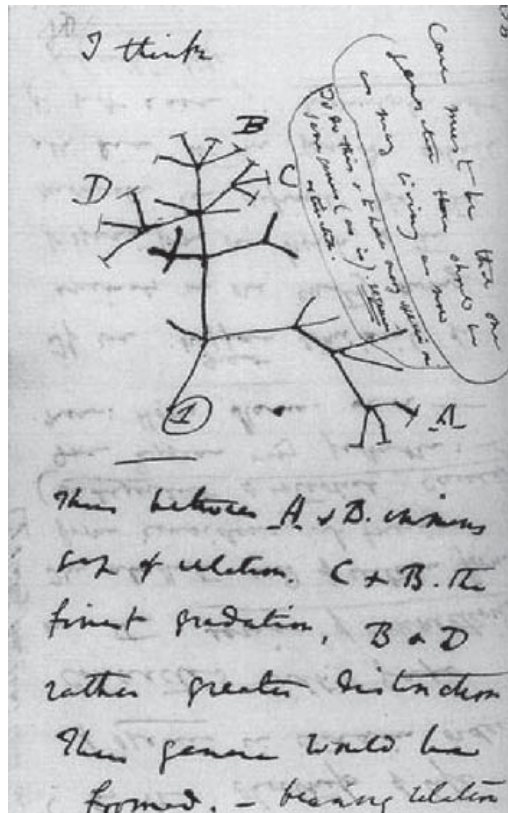 I think
Case must be that one
generation then should be
as many living as now
To do this & to have many species in
same genus (as is) requires
extinction.
B
C
D
A
1
Thus between A & B. immens
gap of relation. C & B. the
finest gradation, B & D
rather greater distinction
Thus genera would be
formed. — bearing relation